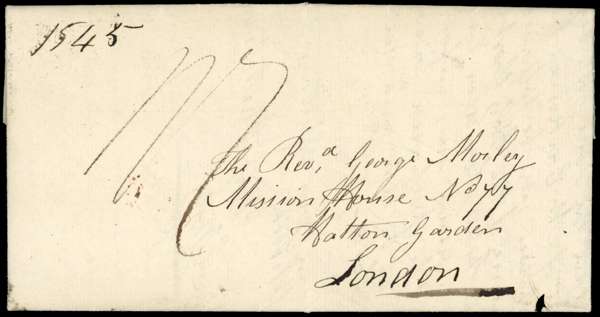 1545
1/7
The Rev,d George Morley
Mission House No 77
Hatton Garden
London